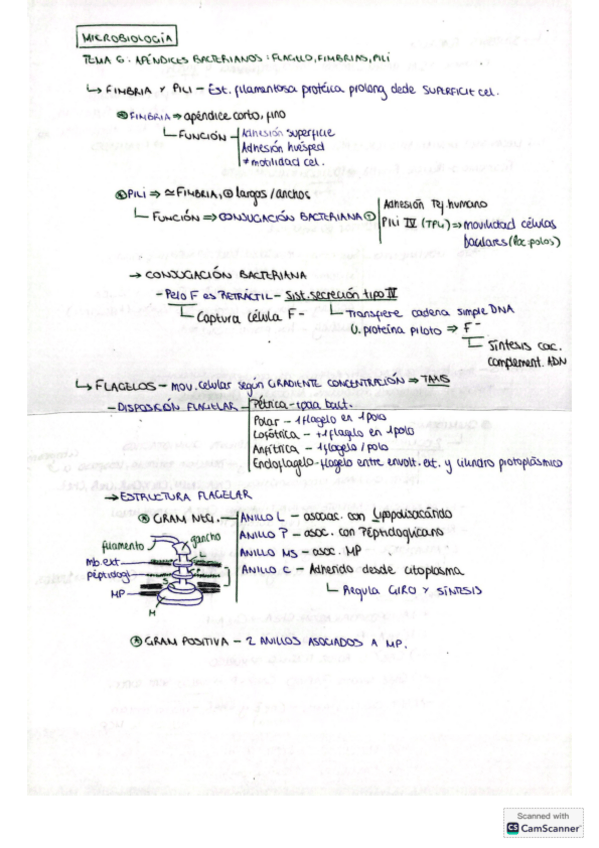 MICROBIOLOGÍA
TEMA 6: APÉNDICES BACTERIANOS: FLAGELO, FIMBRIAS, PILI
↳ FIMBRIA Y PILI - Est. filamentosa protéica prolong desde SUPERFICIE cel.
FIMBRIA ⇒ apéndice corto, fino
↳ FUNCIÓN - Adhesión superficie
Adhesión huésped
≠ motilidad cel.
PILI ⇒ ≃ FIMBRIA, ⊕ largos/anchos
↳ FUNCIÓN ⇒ CONJUGACIÓN BACTERIANA
Adhesión Tej. humano
PILI IV (TP4) ⇒ movilidad células
bacilares (loc. polos)
→ CONJUGACIÓN BACTERIANA
- Pelo F es RETRÁCTIL - Sist. secreción tipo IV
↳ Captura célula F-
↳ Transfiere cadena simple DNA
U. proteína piloto ⇒ F-
↳ Síntesis cac.
complement. ADN
↳ FLAGELOS - mov. celular según GRADIENTE CONCENTRACIÓN ⇒ TAXIS
- DISPOSICIÓN FLAGELAR - Pétrica - toda bact.
Polar - 1 flagelo en 1 polo
Lofótrica - +1 flagelo en 1 polo
Anfítrica - 1 flagelo/polo
Endoflagelo - flagelo entre envolt. ext. y cilindro protoplásmico
→ ESTRUCTURA FLAGELAR
GRAM NEG. - ANILLO L - asociac. con Lipopolisacárido
ANILLO P - asoc. con Peptidoglicano
ANILLO MS - asoc. MP
ANILLO C - Adherido desde citoplasma
↳ Regula GIRO Y SÍNTESIS
filamento
gancho
mb. ext
L
peptidogl
P
S
MP
M
GRAM POSITIVA - 2 ANILLOS ASOCIADOS A MP.
Scanned with
CS CamScanner